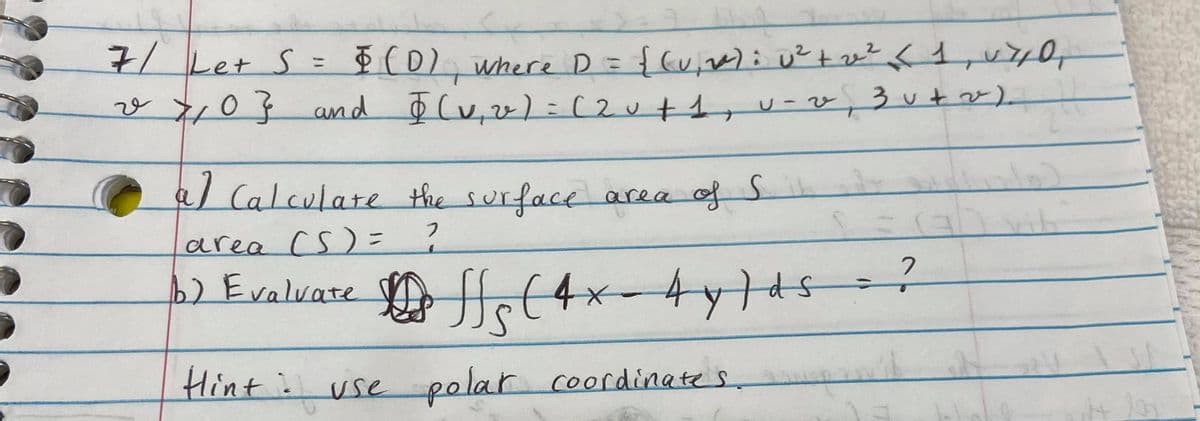 7/ Let S = Φ(D), where D = {(u,v): u² + v² ≤ 1, u ≥ 0,
v ≥ 0} and Φ(u,v) = (2u + 1, u - v, 3u + v).
a) Calculate the surface area of S
area (S) = ?
b) Evaluate ∬_S (4x - 4y) ds = ?
Hint: use polar coordinates.